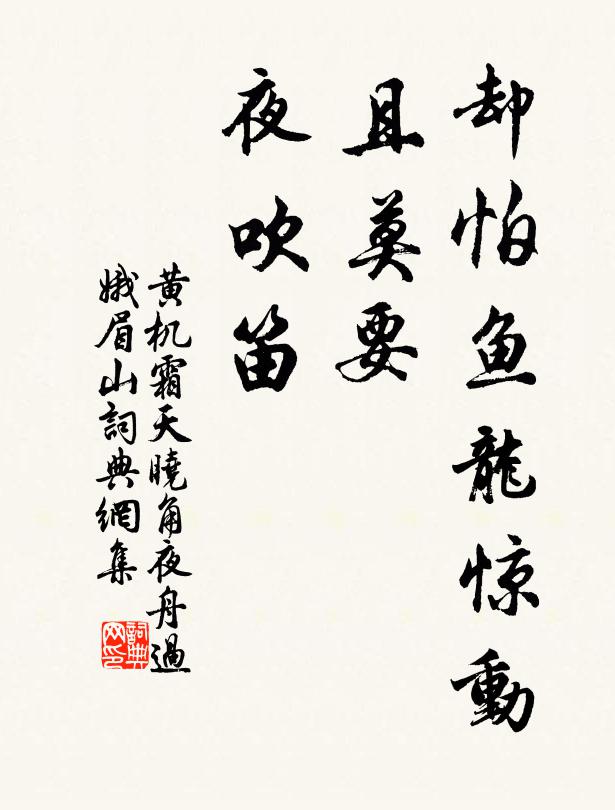 却怕鱼龍惊動
且莫要
夜吹笛
黄机霜天曉角夜舟過
娥眉山詞典網集
詞典
网印